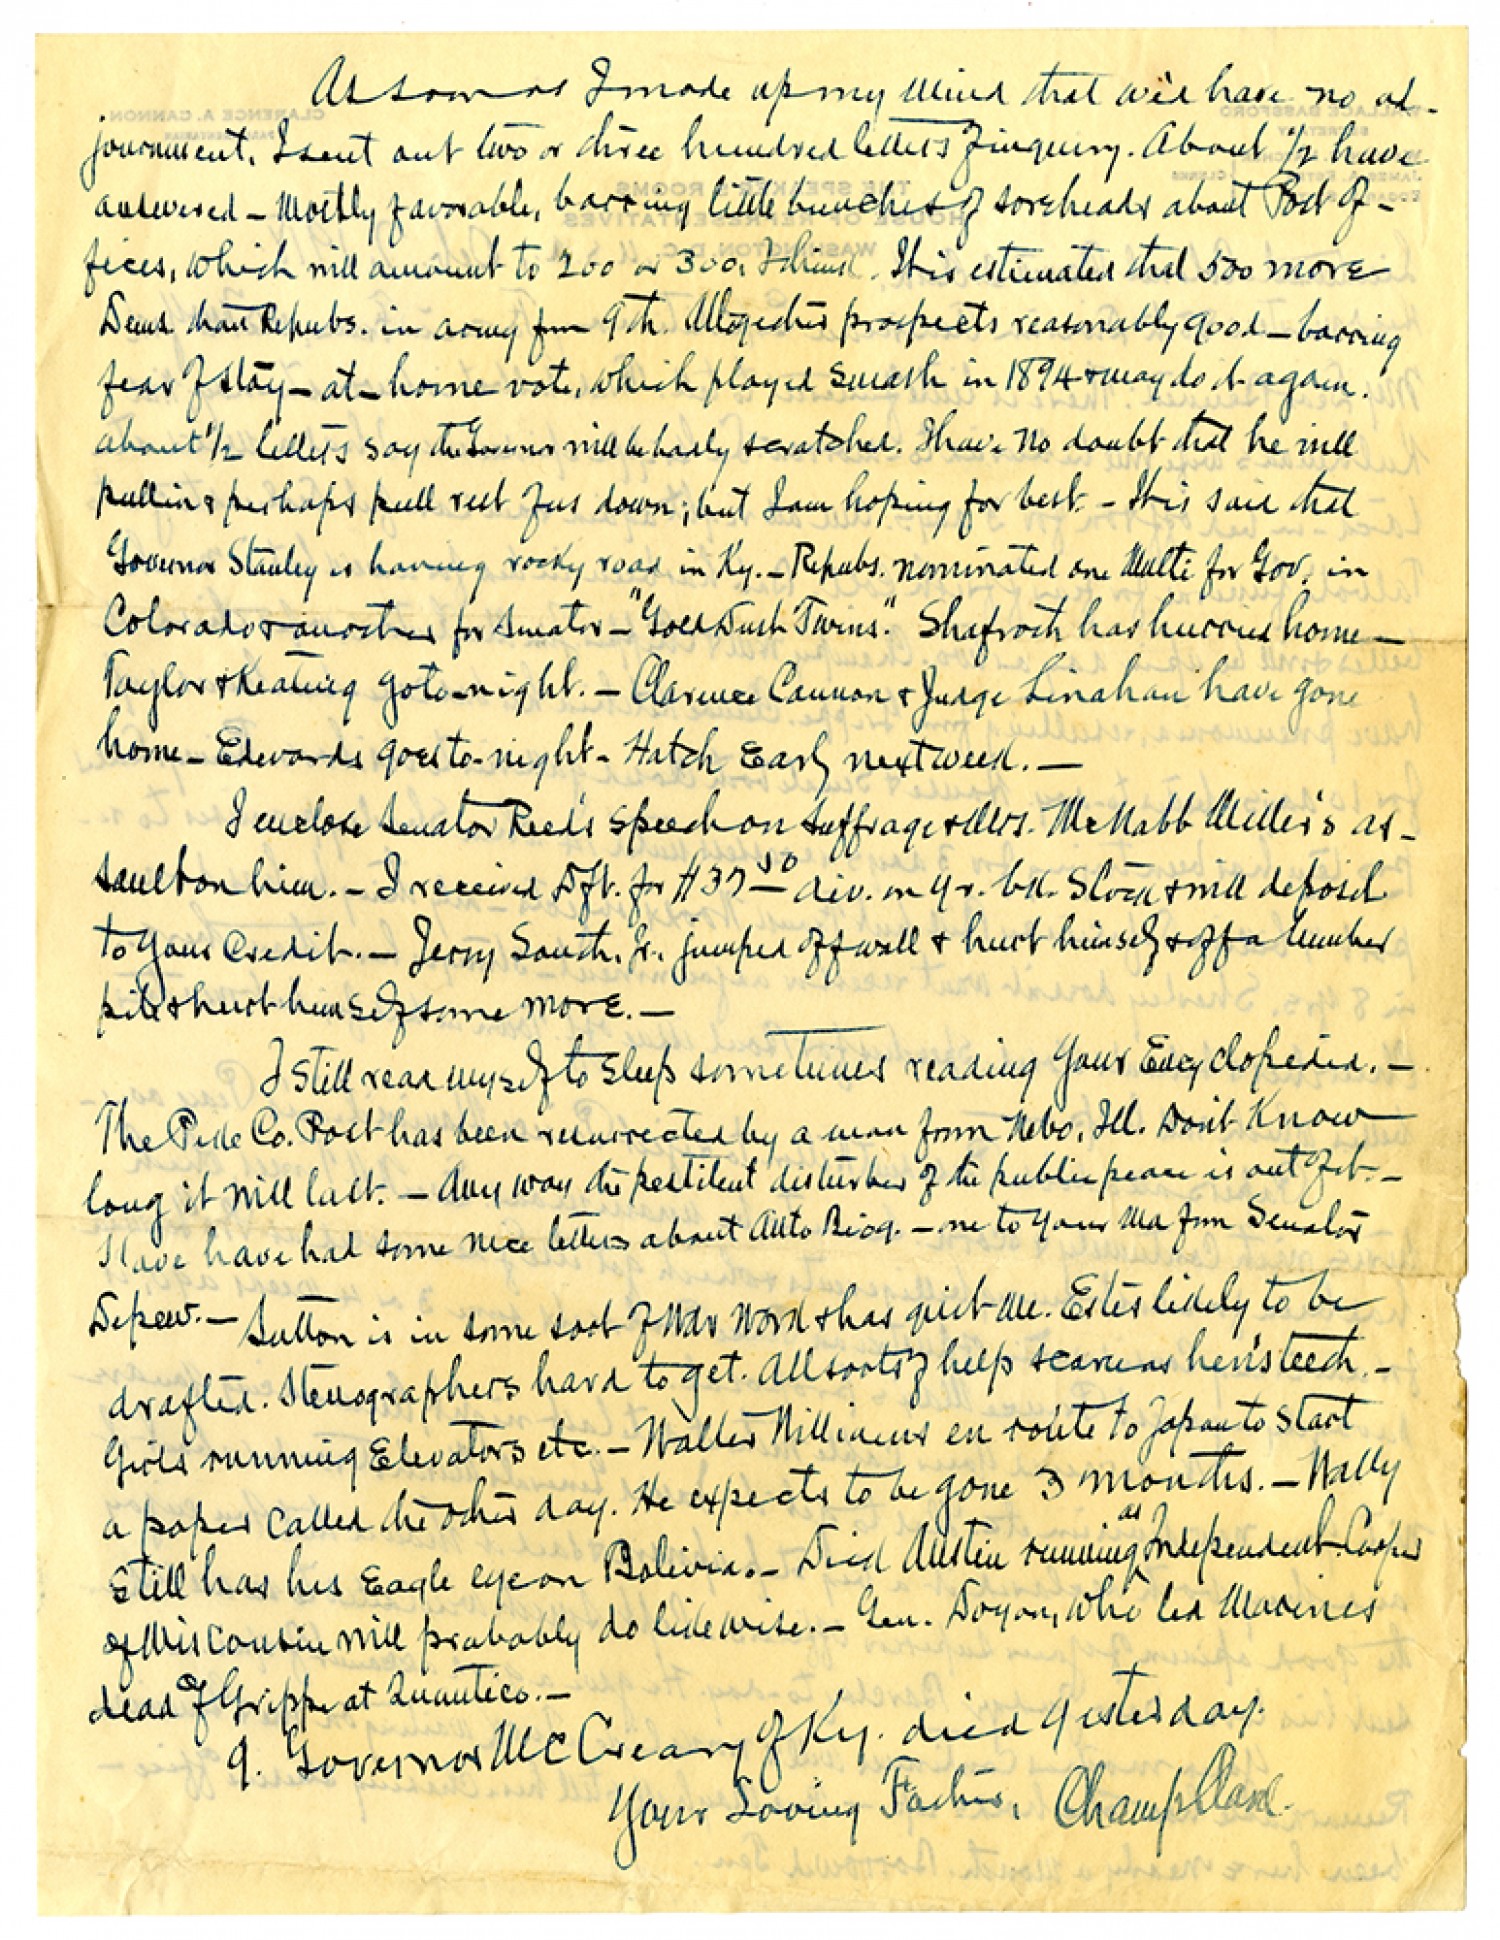 As soon as I made up my mind that we'd have no ad-
journment, I sent out two or three hundred letters of inquiry. About 1/2 have
answered – Mostly favorable, barring little bunches of soreheads about Post Of-
fices, which will amount to 200 or 300, I think. It is estimated that 500 more
Dems than Repubs. in army from 9th. Altogether prospects reasonably good – barring
fear of stay-at-home vote, which played smash in 1894 & may do it again.
About 1/2 letters say the Governor will be badly scratched. I have no doubt that he will
pull in & perhaps pull rest of us down; but I am hoping for best. – It is said that
Governor Stanley is having rocky road in Ky. – Repubs. nominated one Multi for Gov. in
Colorado & another for Senator – "Gold Dust Twins." Shafroth has hurried home –
Taylor & Keating go to-night. – Clarence Cannon & Judge Linahan have gone
home – Edwards goes to-night – Hatch Early next week. –
I enclose Senator Reed's speech on Suffrage & Mrs. McNabb Miller's as-
sault on him. – I received Dft. for $37 50 div. on yr. bk. Stock & will deposit
to your Credit. – Jerry South, Jr., jumped off wall & hurt himself & off a lumber
pile & hurt himself some more. –
I still read myself to sleep sometimes reading your Encyclopedia. –
The Pike Co. Post has been resurrected by a man from Nebo, Ill. Don't Know
long it will last. – Any way the pestilent disturber of the public peace is out of it. –
I have have had some nice letters about Auto Biog. – one to your Ma from Senator
Depew. – Sutton is in some sort of War Work & has quit me. Estes likely to be
drafted. Stenographers hard to get. All sorts of help scarce as hen's teeth. –
Girls running Elevators etc. – Walter Williams en route to Japan to start
a paper called the other day. He expects to be gone 3 months. – Wally
still has his Eagle eye on Bolivia. – Dick Austin running as Independent. Cooper
of Wisconsin will probably do likewise. – Gen. Doyen, who led Marines
dead of Grippe at Quantico. –
9. Governor McCreary of Ky. died yesterday.
Your Loving Father, Champ Clark.